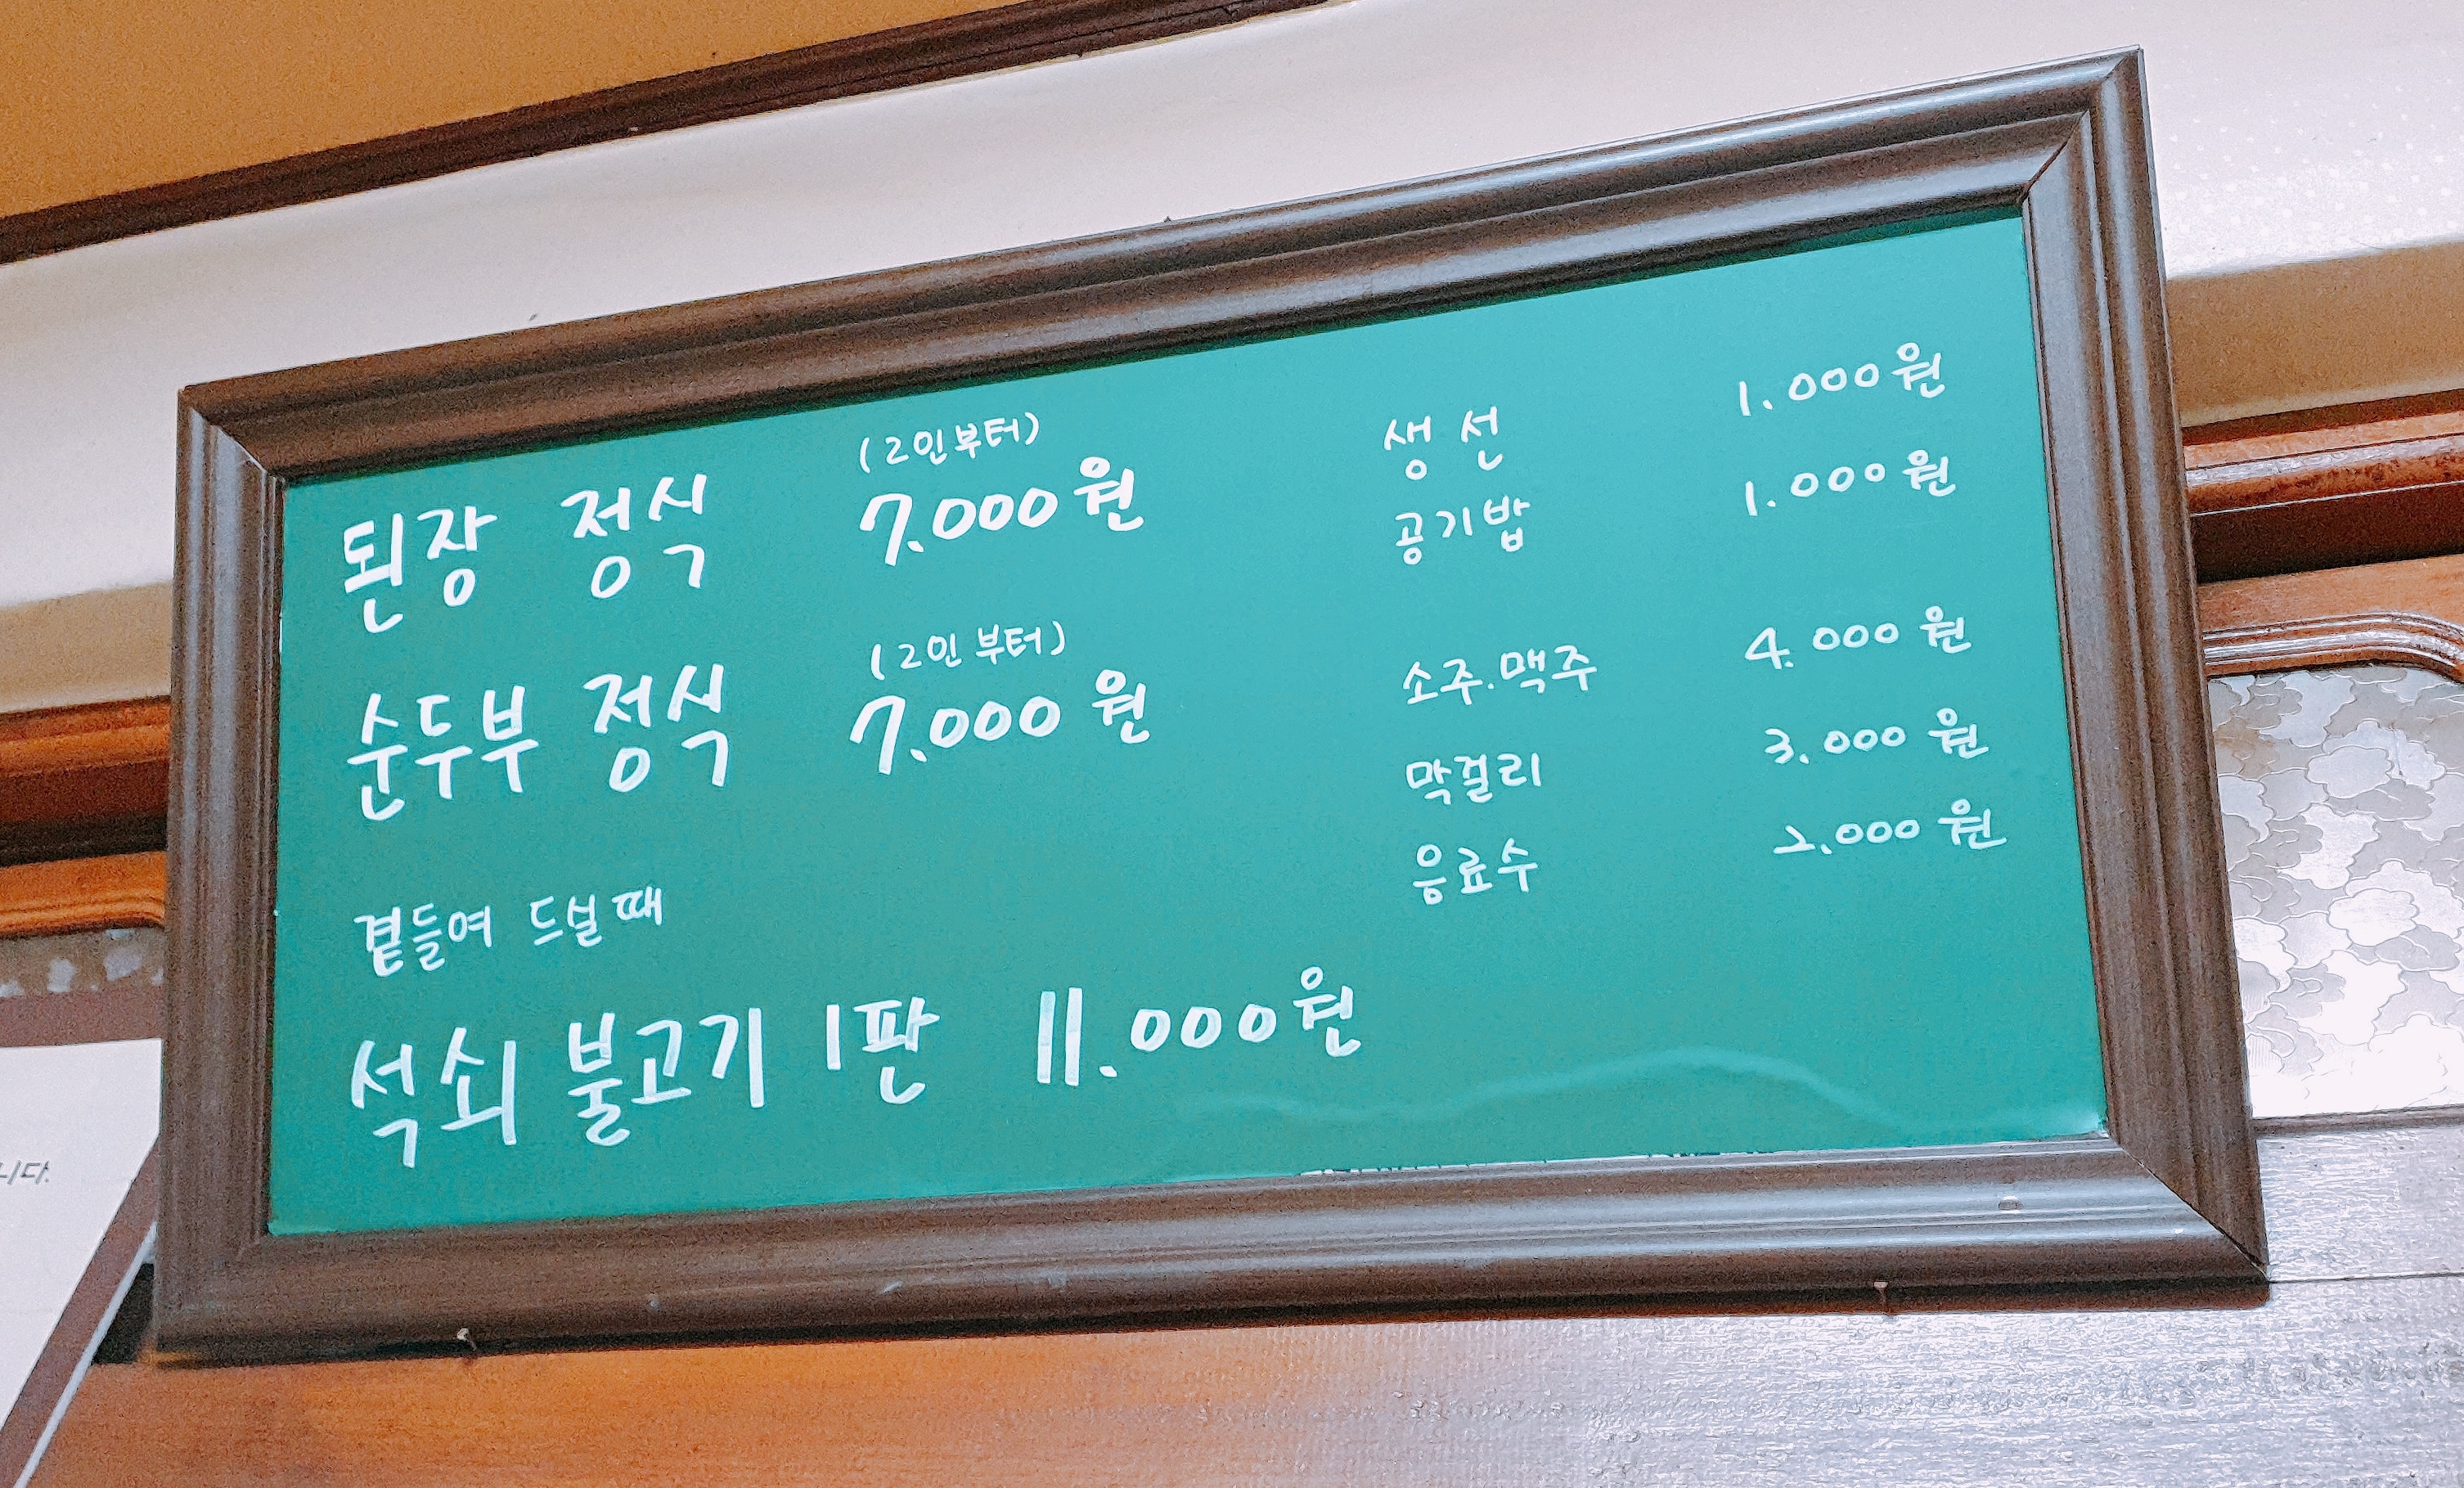 (2인부터)
된장 정식 7.000원
(2인부터)
순두부 정식 7.000원
곁들여 드실때
석쇠 불고기 1판 11.000원
생선 1.000원
공기밥 1.000원
소주.맥주 4.000원
막걸리 3.000원
음료수 2.000원
니다.